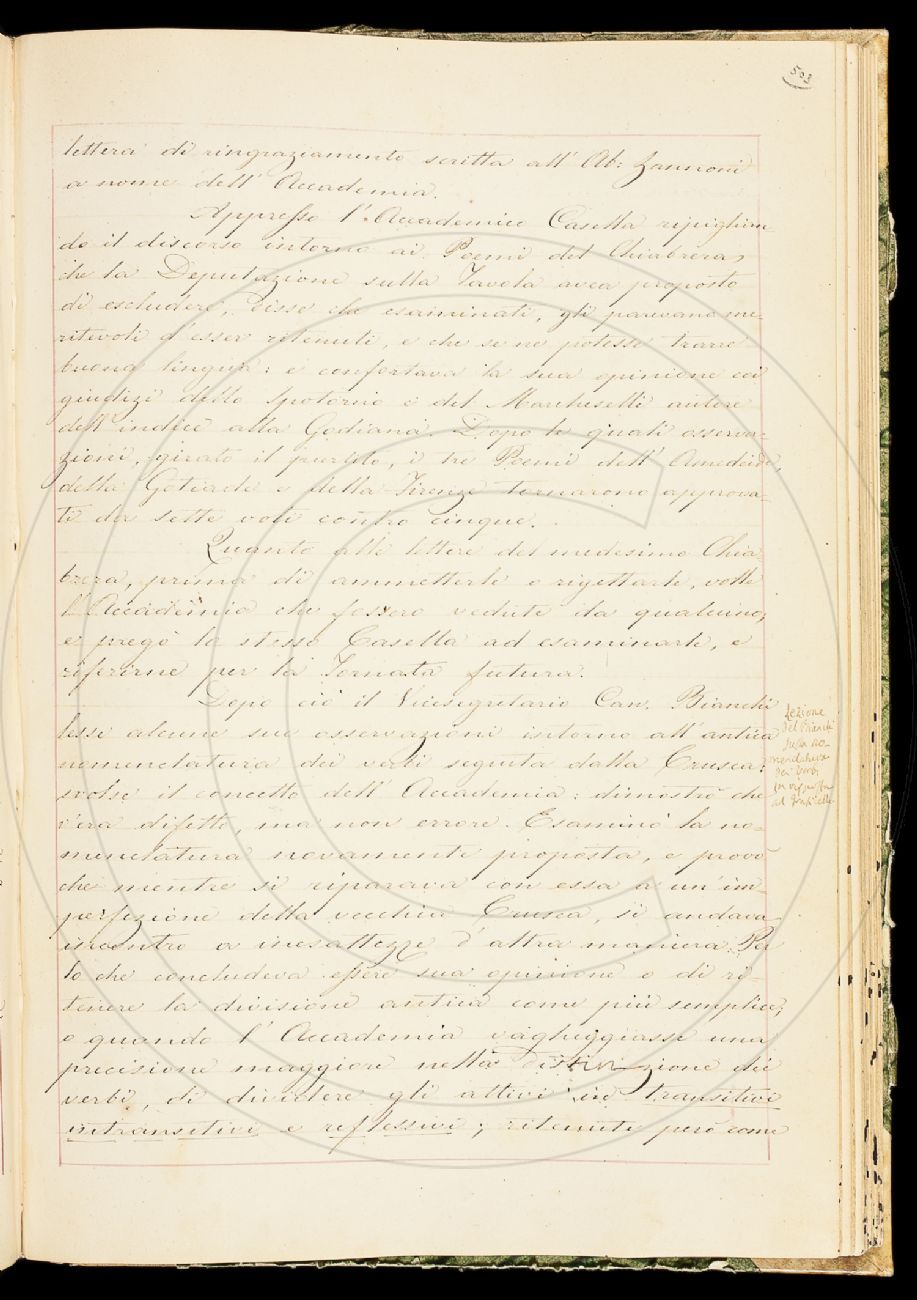 503
lettera di ringraziamento scritta all' Ab: Zannoni
a nome dell' Accademia.
Appresso l'Accademico Casella ripiglian
do il discorso intorno ai Poemi del Chiabrera,
che la Deputazione sulla Tavola avea proposto
di escludere, disse che esaminati, gli parevano me-
ritevoli d'esser ritenuti, e che se ne potesse trarre
buona lingua: e confortava la sua opinione coi
giudizi dello Spotorno e del Marcheselli autore
dell' indice alla Gotiana. Dopo le quali osserva-
zioni, girato il partito, i tre Poemi dell' Amedeide,
della Gotiade e della Firenze tornarono approva-
ti da sette voti contro cinque.
Quanto alle lettere del medesimo Chia
brera, prima di ammetterle o rigettarle, volle
l'Accademia che fossero vedute da qualcuno;
e pregò lo stesso Casella ad esaminarle, e
riferirne per la Tornata futura.
Dopo ciò il Vicesegretario Cav. Bianchi
lesse alcune sue osservazioni intorno all' antica
nomenclatura dei verbi seguita dalla Crusca:
svolse il concetto dell' Accademia: dimostrò che
v'era difetto, ma non errore. Esaminò la no-
menclatura novamente proposta, e provò
che mentre si riparava con essa a un'im-
perfezione della vecchia Crusca, si andava
incontro a inesattezze d'altra maniera. Per
lo che concludeva essere sua opinione o di ri-
tenere la divisione antica come più semplice;
o quando l' Accademia vagheggiasse una
precisione maggiore nella distinzione dei
verbi, di dividere gli attivi in transitivi
intransitivi e reflessivi; ritenuti però come
Lezione
del Bianchi
sulla no-
menclatura
dei verbi
in risposta
al